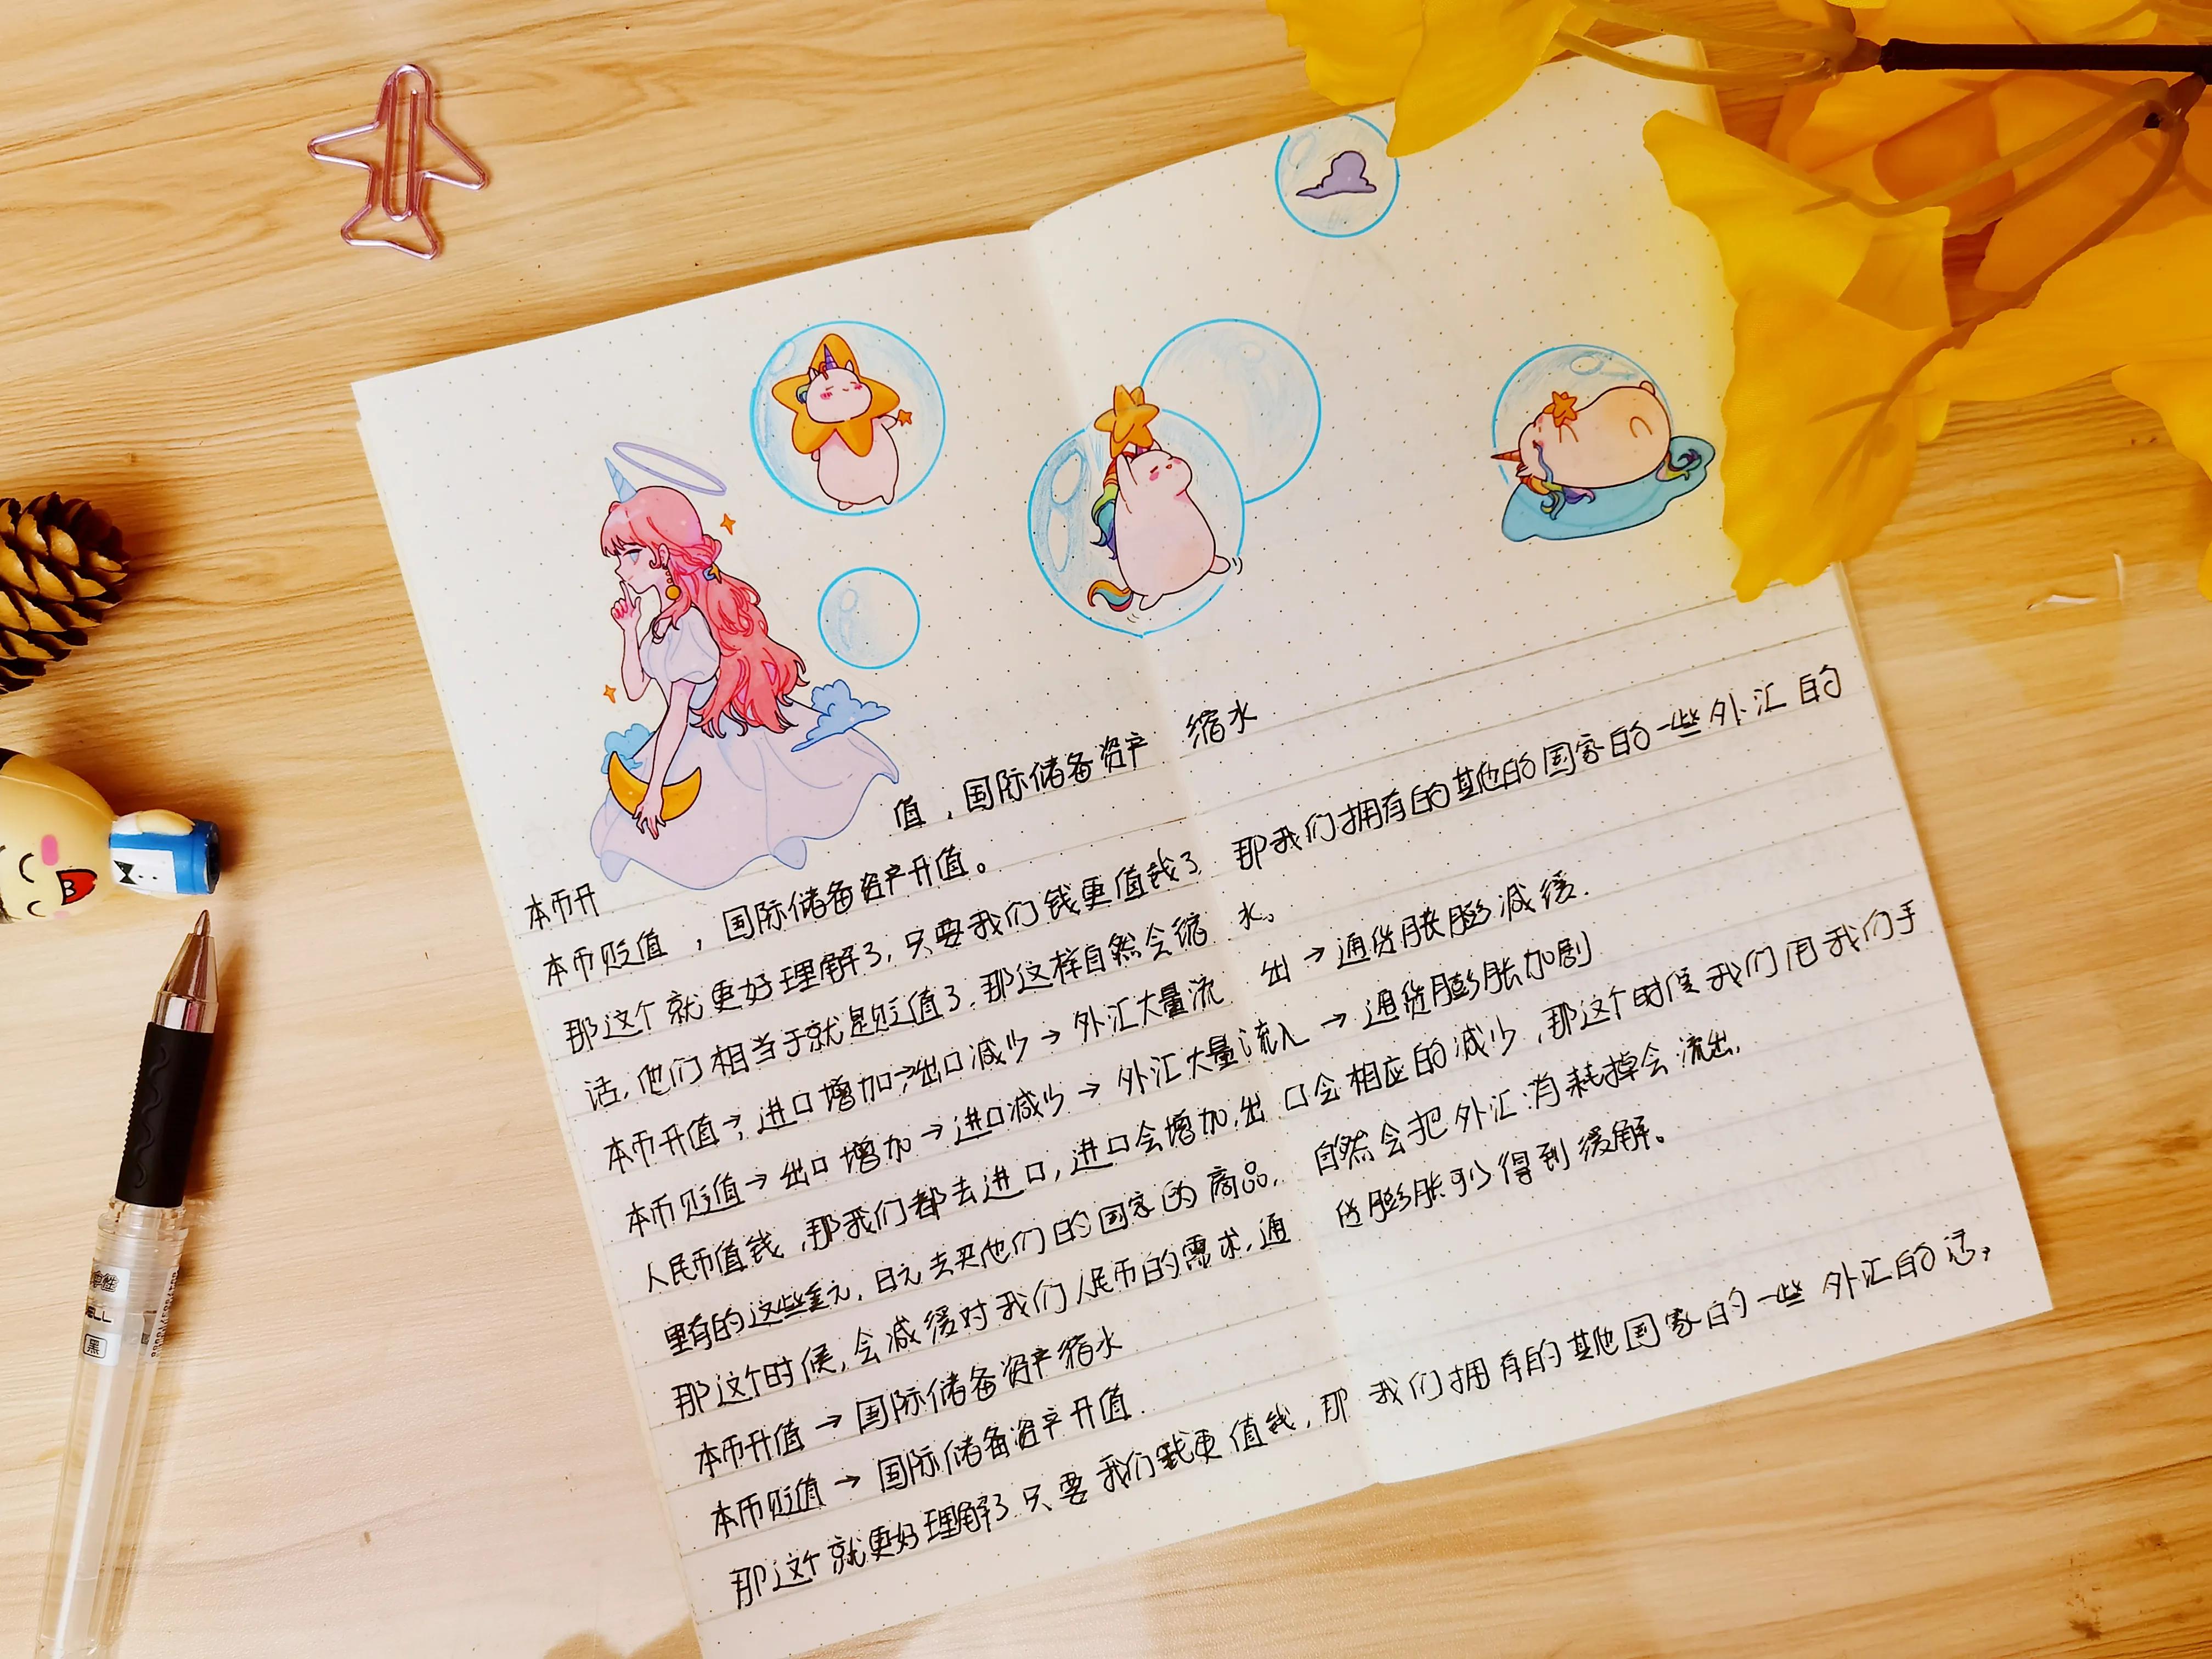 本币升值，国际储备资产缩水
本币贬值，国际储备资产升值。
那这个就更好理解了，只要我们钱更值钱了 那我们拥有的其他的国家的一些外汇的
话，他们相当于就是贬值了，那这样自然会缩水。
本币升值→，进口增加→出口减少→外汇大量流出→通货胀膨减缓.
本币贬值→出口增加→进口减少→外汇大量流入→通货膨胀加剧
人民币值钱，那我们都去进口，进口会增加，出口会相应的减少，那这个时候我们用我们手
里有的这些美元，日元去买他们的国家的商品，自然会把外汇消耗掉会流出，
那这个时候，会减缓对我们人民币的需求，通货膨胀可以得到缓解。
本币升值→国际储备资产缩水
本币贬值→国际储备资产升值.
那这个就更好理解了 只要我们钱更值钱，那我们拥有的其他国家的一些外汇的话，
黑